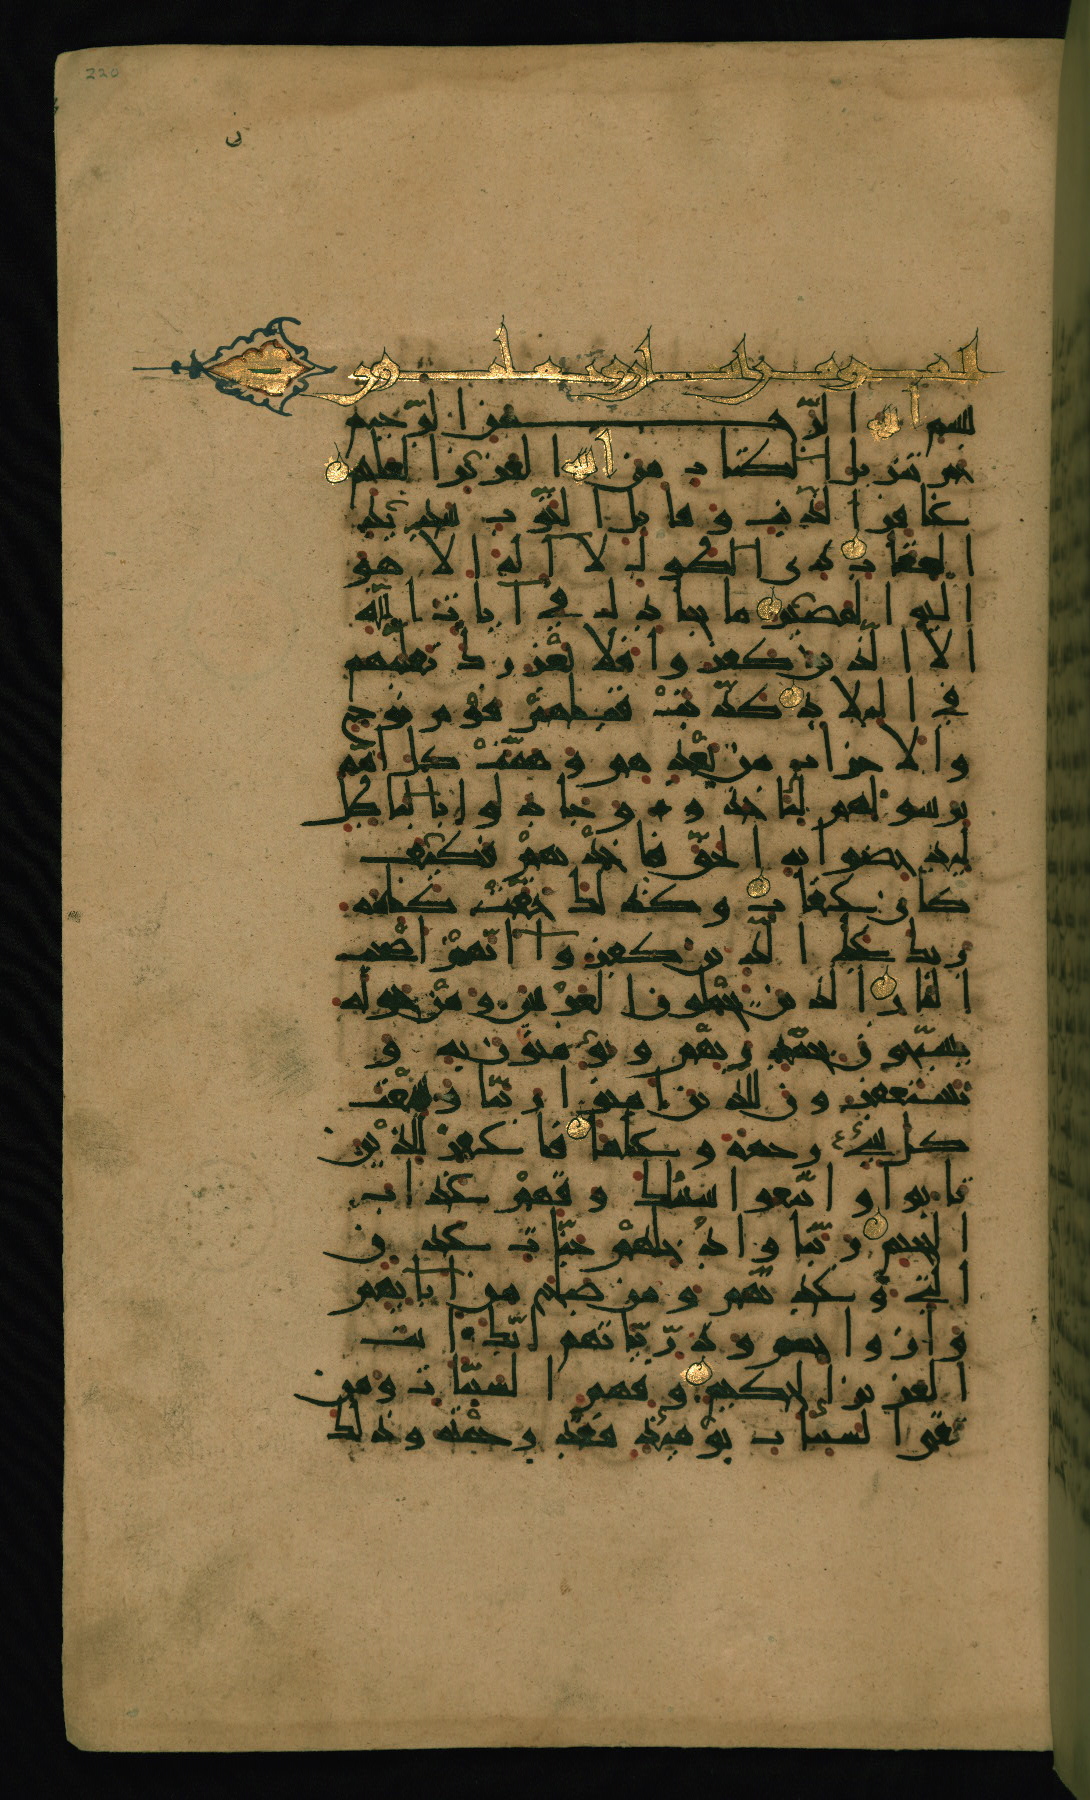 220
المومن
بسم الله الرحمن الرحيم
حم تنزيل الكتاب من الله العزيز العليم
غافر الذنب و قابل التوب شديد
العقاب ذي الطول لا اله الا هو
اليه المصير ما يجادل في ايات الله
الا الذين كفروا فلا يغررك تقلبهم
في البلاد كذّبتْ قبلهمْ قوْم نوح
والاحزاب من بعْدهم و همّتْ كل امّة
برسولهم لياخذوه و جادلوا بالباطل
ليدحضوا به الحقّ فاخذْتهمْ فكيْف
كان عقاب و كذلك حقّتْ كلمة
ربك على الّذين كفروا انّهمْ اصْحب
النار الذين يحْملون العرْش و منْ حوله
يسبّحون بحمْد ربّهم و يؤْمنون به و
يستغفرون للذين امنوا ربّنا وسعْت
كل شيء رحمة و علما فاغفر للذين
تابوا و اتّبعوا سبيلك و قهمْ عذاب
الجحيم ربّنا و ادْخلهمْ جنّات عدن
التي وعدتّهم و من صلح من ابائهم
و ازواجهم و ذرّيّاتهم انّك انت
العزيز الحكيم و قهم السيّات و من
تق السيّات يوْمئذ فقد رحمْته و ذلك